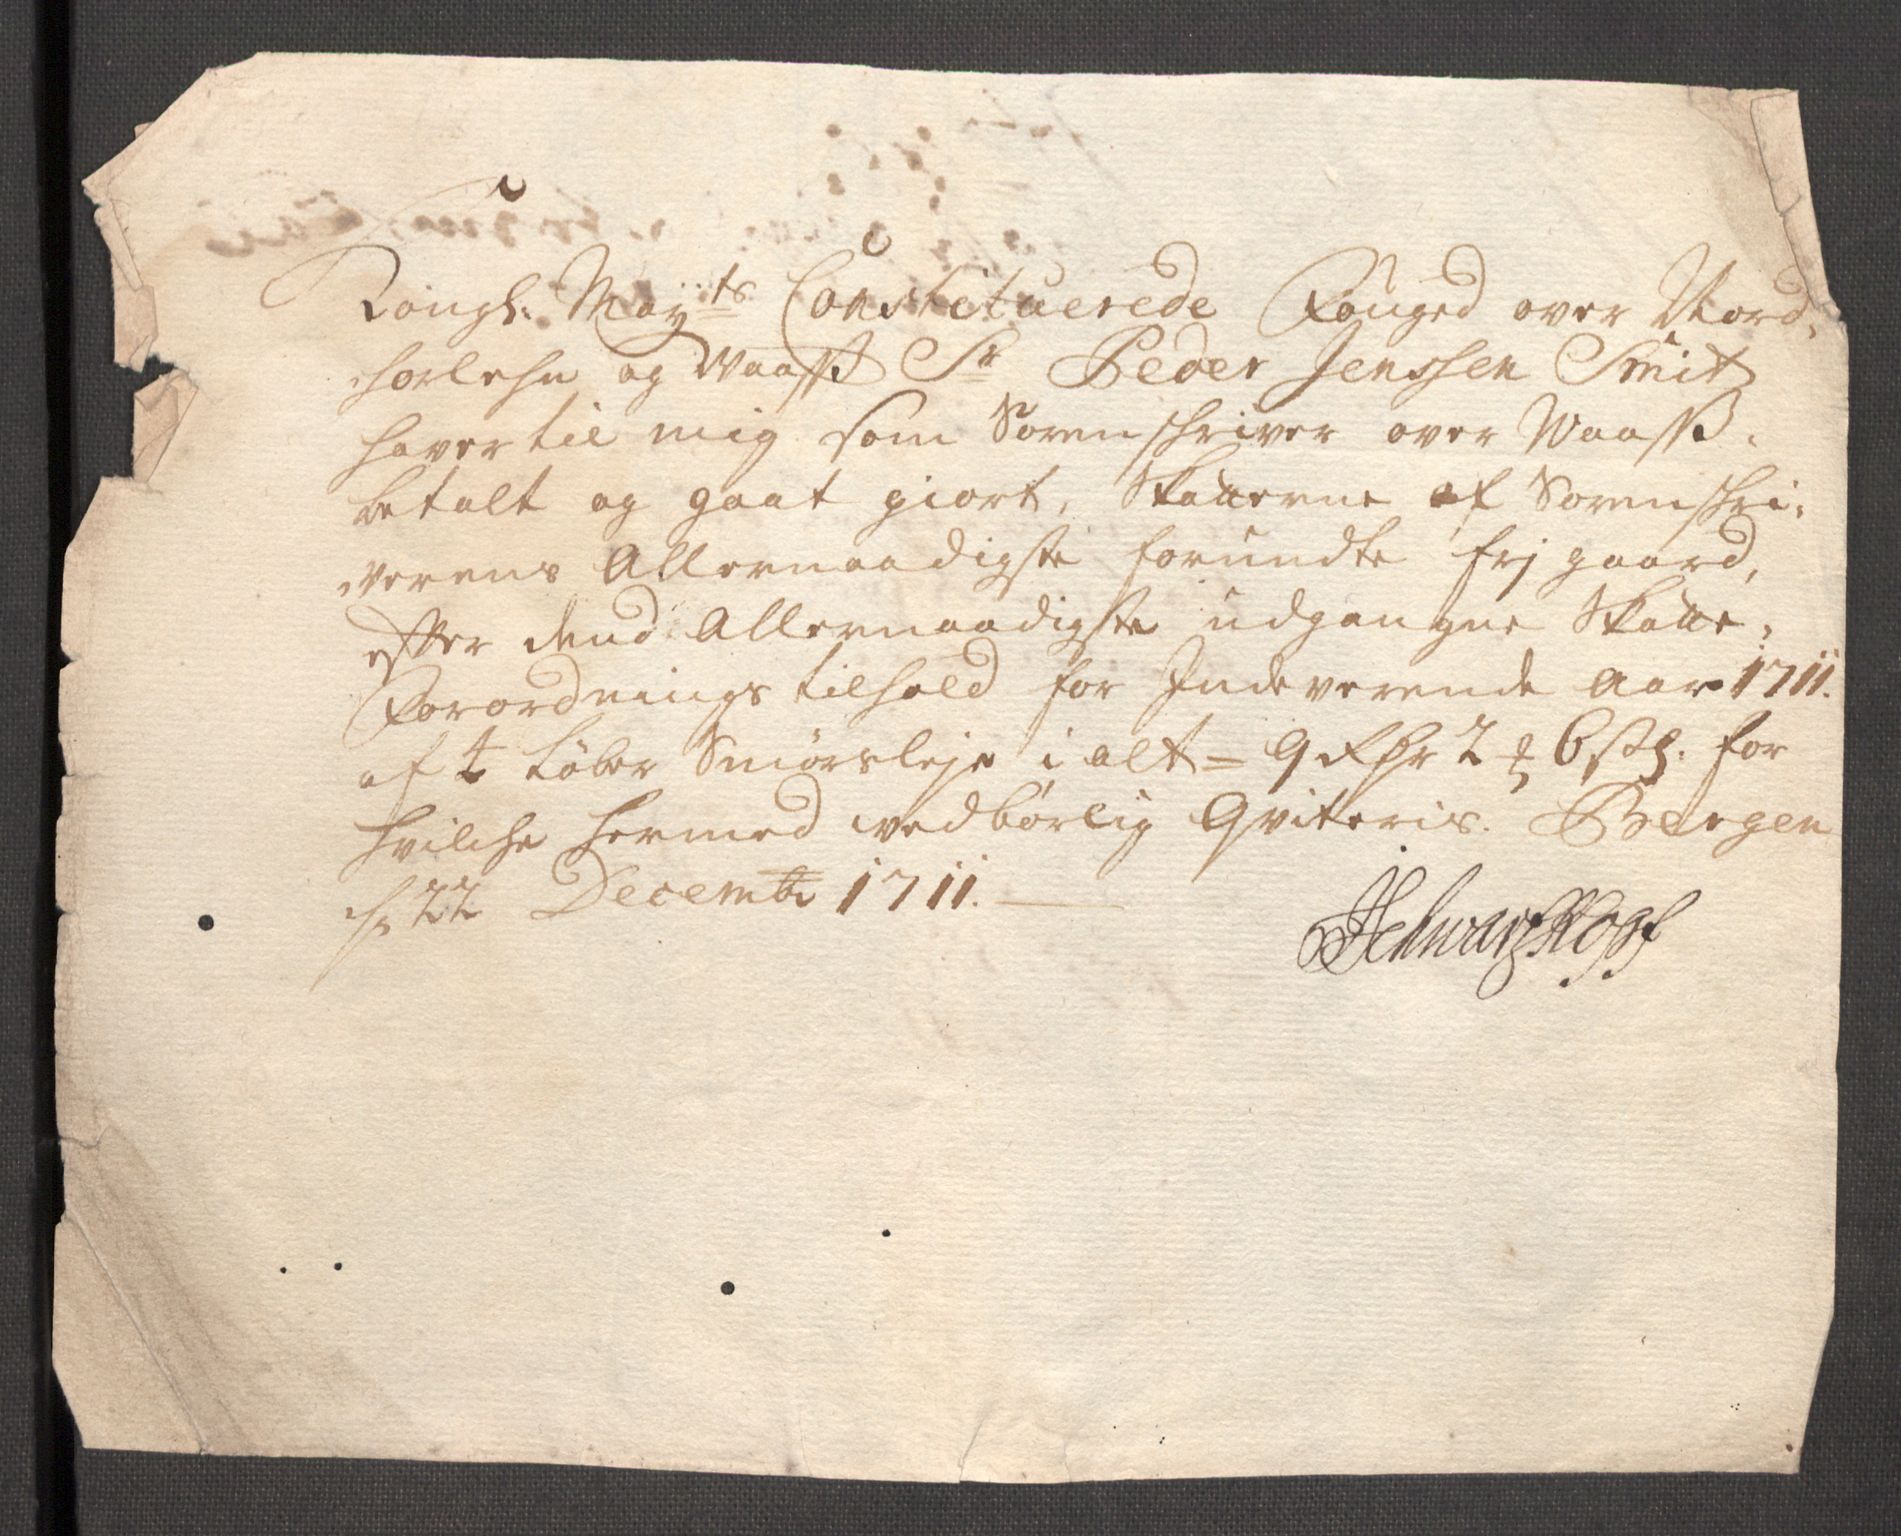 Kongl: Mayts Constituerede Fouged over Nord,
horlehn og Waass Sr Peder Jenssen Smit
haver til mig som Sorenschriver over Waass.
betalt og gaat giort, Skatterne af Sorenschri,
verens Allernaadigste forundte frj gaard,
efter dend Allernaadigste udgangne Skatte,
Forordnings tilhold for Indeverende Aar 1711.
af Løber Smørsleje i alt = 9 Rdr 2 6 s: for
hvilche hermed wedbørlig Qviteris. Bergen
22 Decembr 1711.
Schwartzkopf